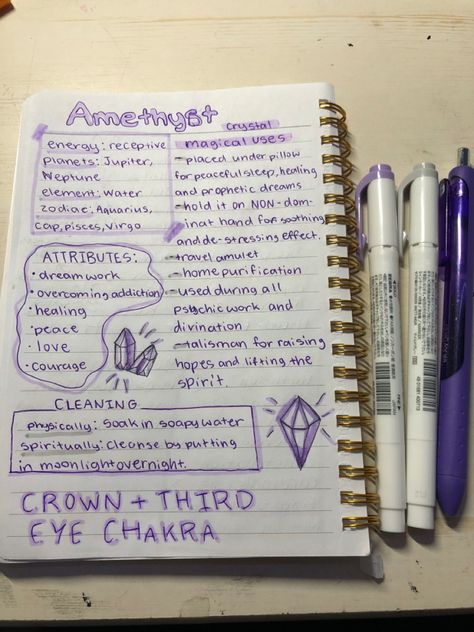 Amethyst
energy: receptive
planets: Jupiter,
Neptune
element: Water
zodiac: Aquarius,
Cap, pisces, Virgo
crystal
magical uses
- placed under pillow
for peaceful sleep, healing
and prophetic dreams
- hold it on NON-dom-
inat hand for soothing
and de-stressing effect.
- travel amulet
- home purification
- used during all
psychic work and
divination
- talisman for raising
hopes and lifting the
spirit.
ATTRIBUTES:
• dreamwork
• overcoming addiction
• healing
• peace
• love
• courage
CLEANING
physically: soak in soapy water
spiritually: cleanse by putting
in moonlight overnight.
CROWN + THIRD
EYE CHAKRA